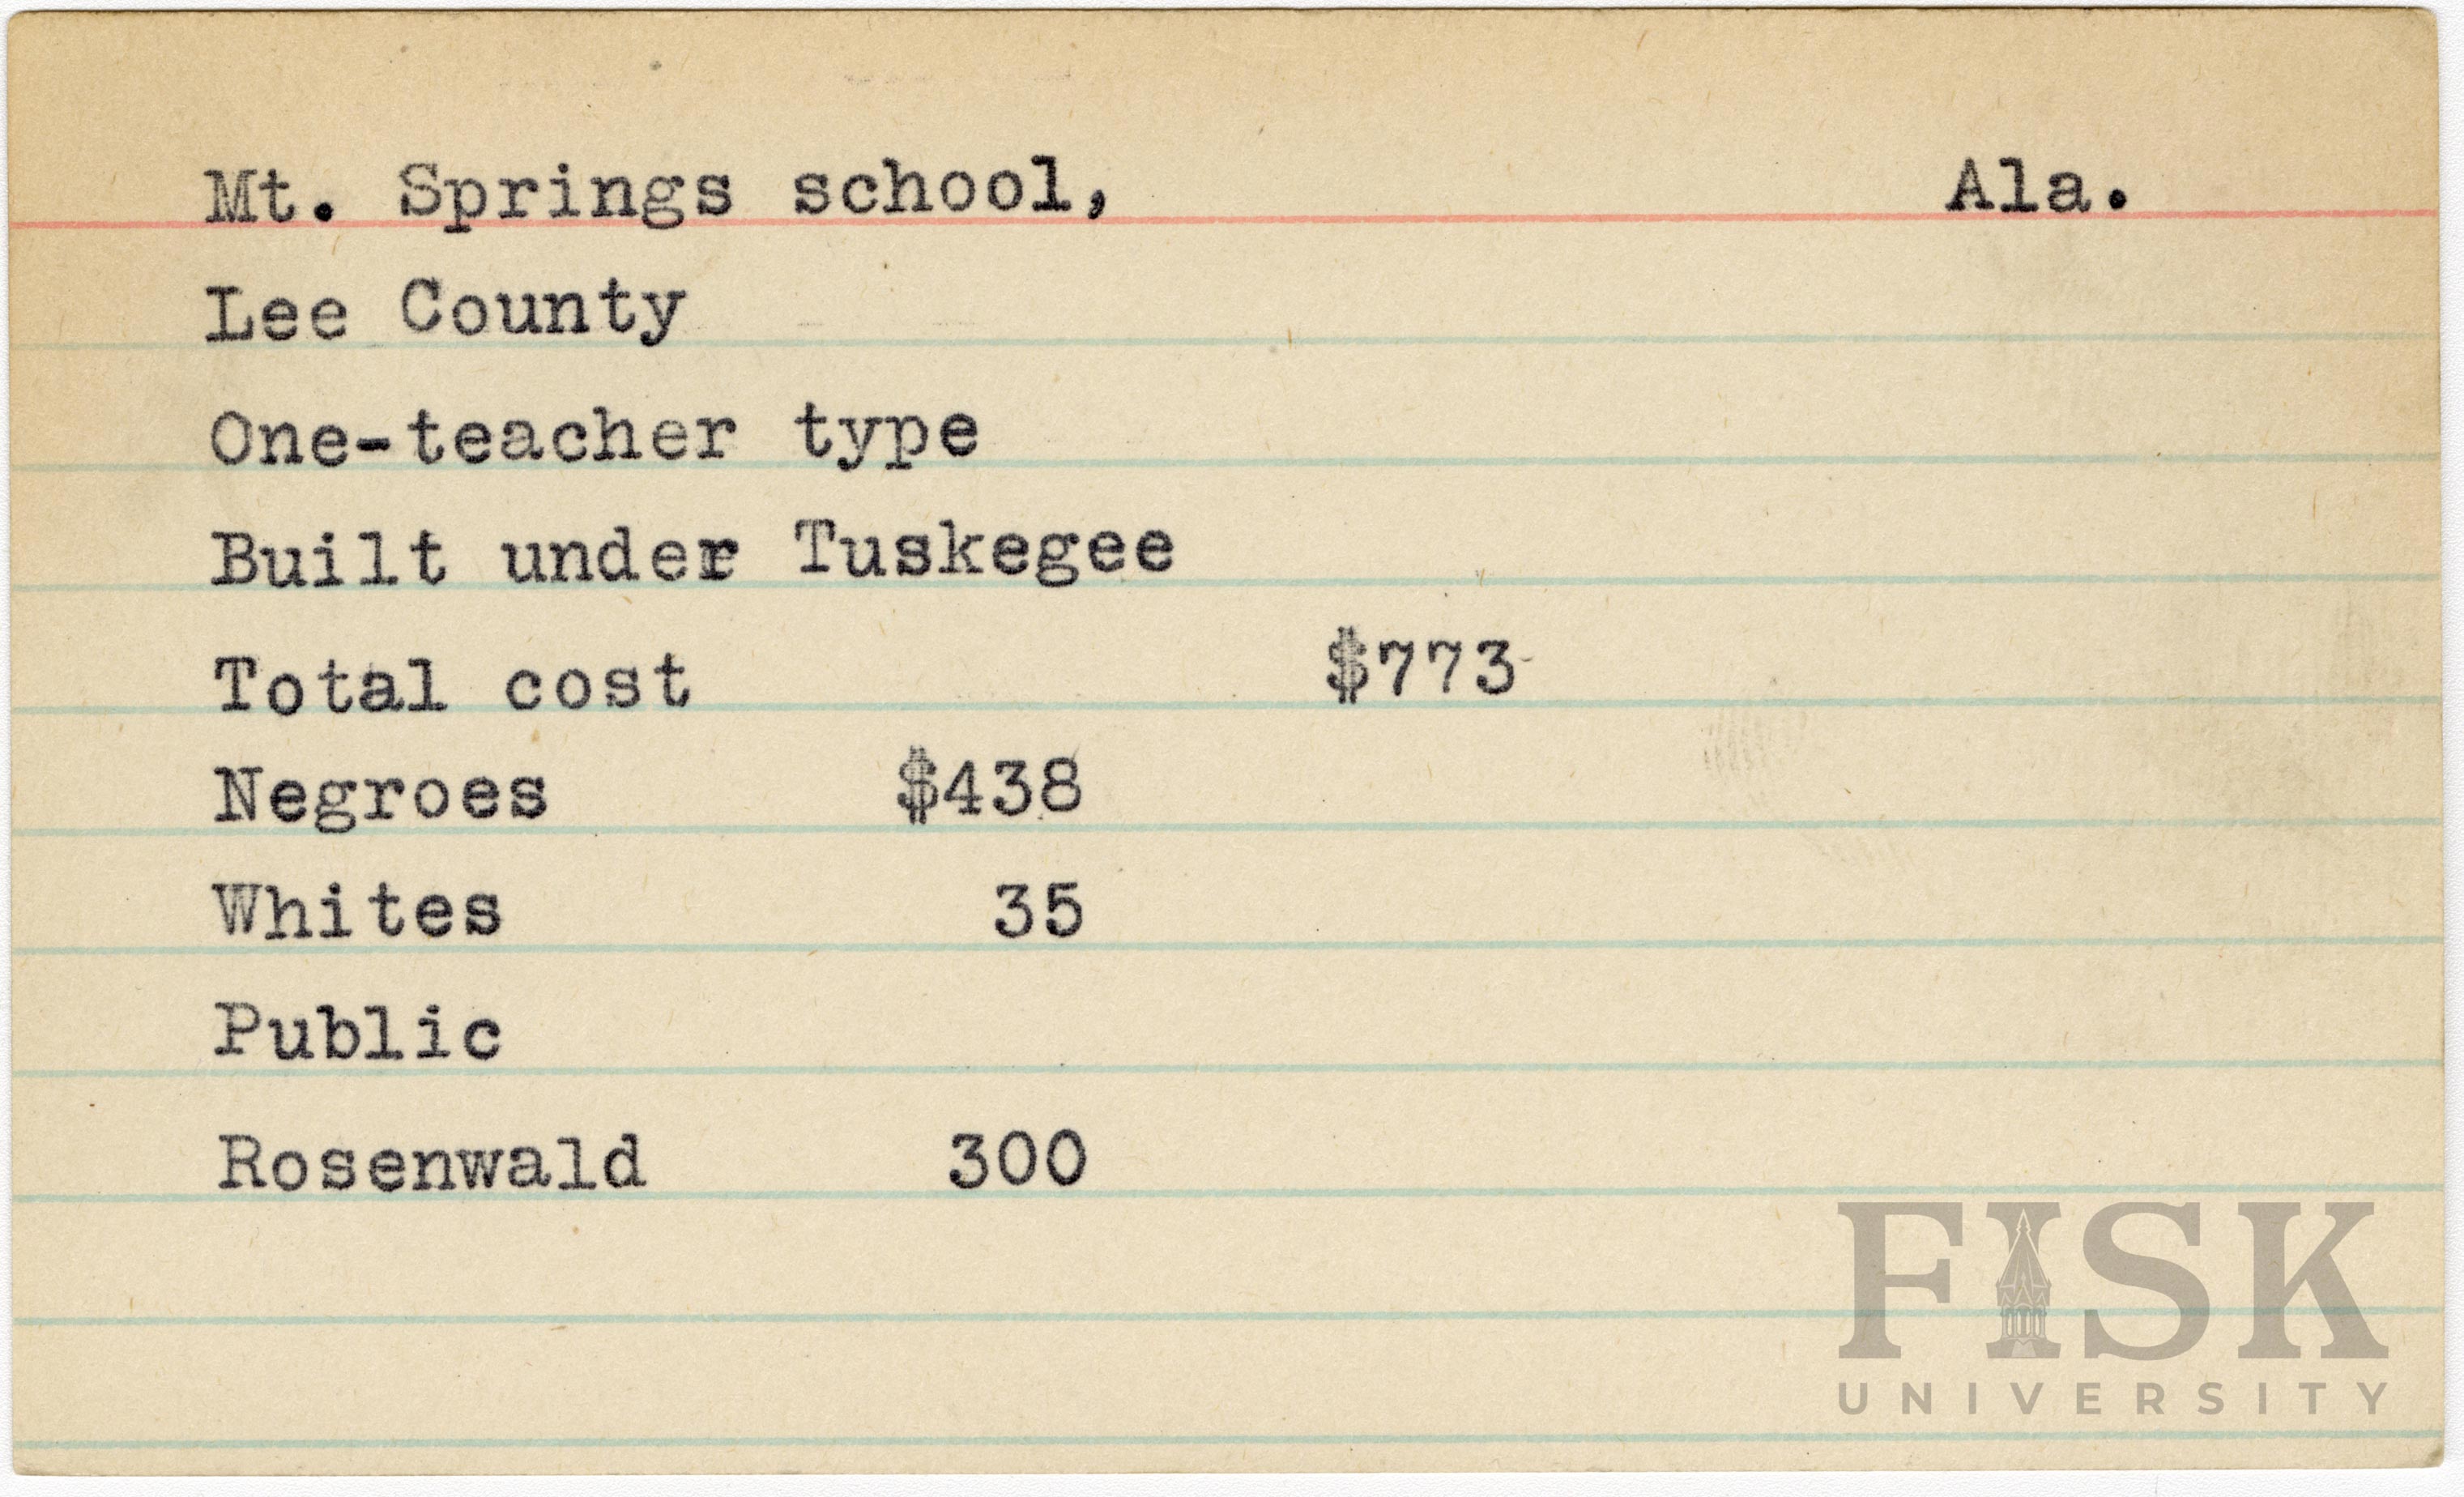 Mt. Springs school, Ala.
Lee County
One-teacher type
Built under Tuskegee
Total cost $773
Negroes $438
Whites 35
Public
Rosenwald 300
FISK
UNIVERSITY